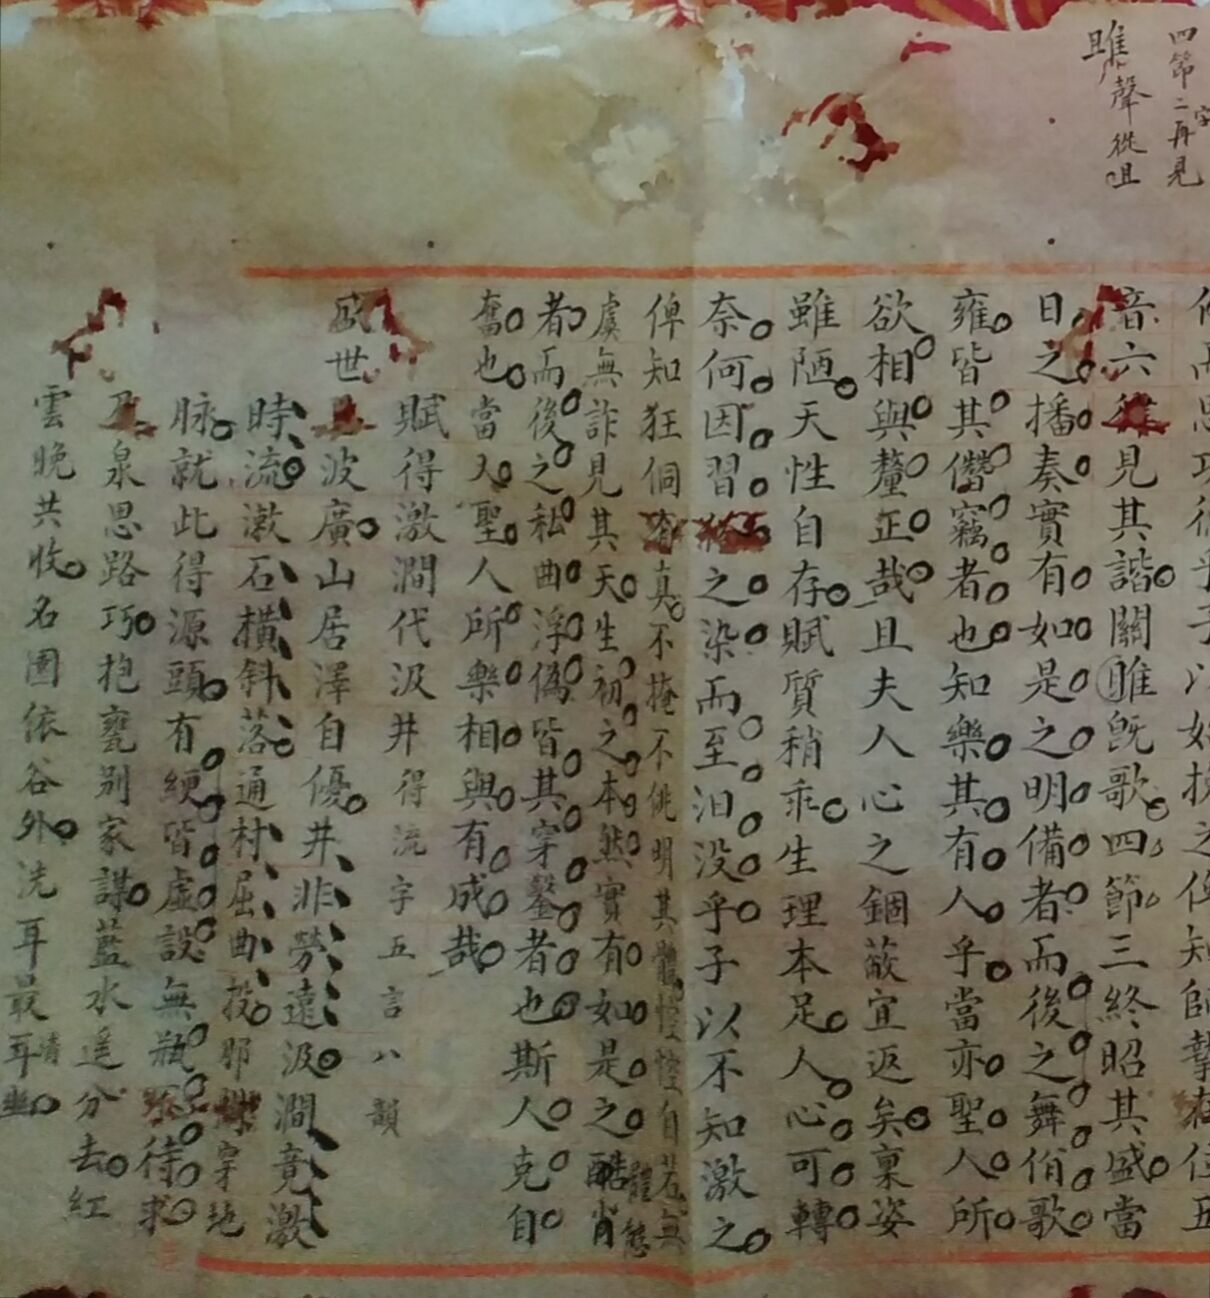 四節二字再見
雎聲從且
音六見其諧關雎既歌四節三終昭其盛當
日之播奏實有如是之明備者而後之舞佾歌
雍皆其僭竊者也知樂其有人乎當亦聖人所
欲相與釐正哉且夫人心之錮蔽宜返矣稟姿
雖陋天性自存賦質稍乖生理本足人心可轉
奈何因習之染而至汩没乎子以不知激之
俾知狂侗有真不掩不佻明其體悾悾自若無
虞無詐見其天生初之本然實有如是之酷肖
體態
者而後之私曲浮僞皆其穿鑿者也斯人克自
奮也當入聖人所樂相與有成哉
賦得激澗代汲井得流字五言八韻
盛世波廣山居澤自優井非勞遠汲澗竟激
時流潄石橫斜落通村屈曲投那穿地
脉就此得源頭有綆皆虛設無瓶待求
及泉思路巧抱甕别家謀藍水遥分去紅
雲晚共收名園依谷外洗耳最清